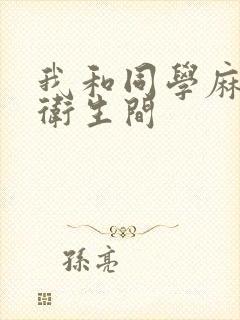 我和同學麻
衛生間
孫亮